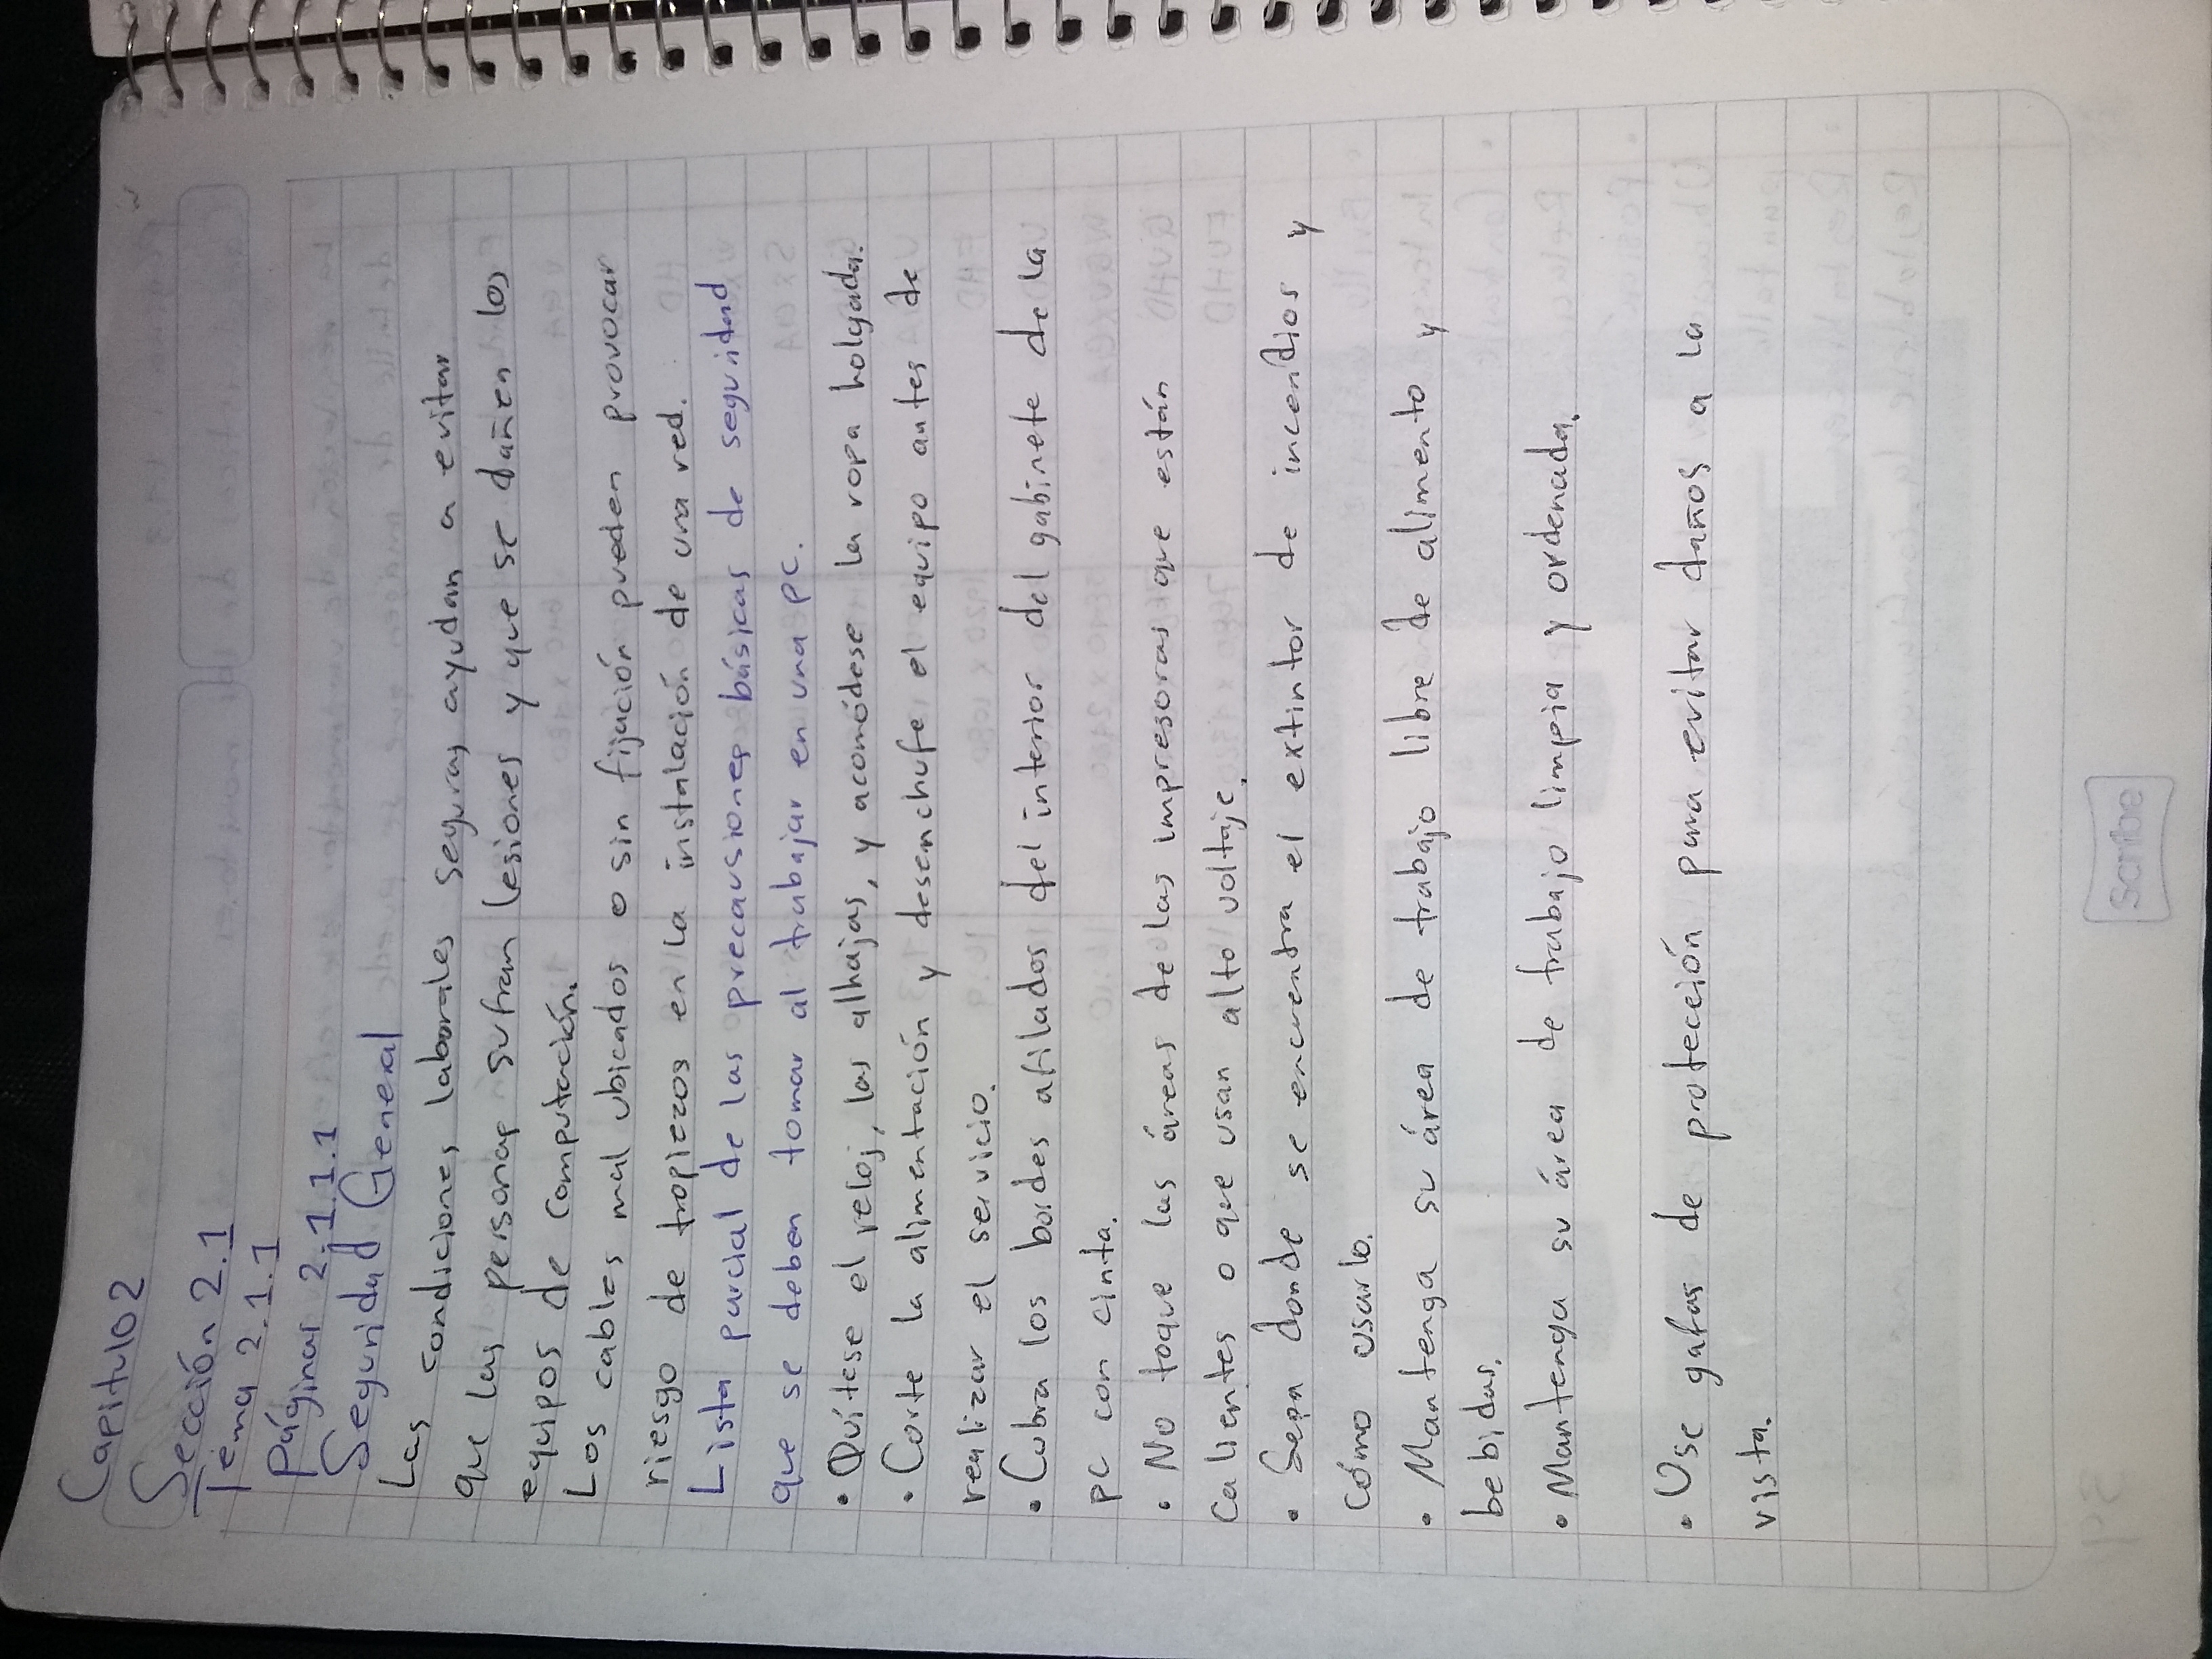 Capitulo 2
Sección 2.1
Tema 2.1.1
Páginas 2.1.1.1
Seguridad General
Las condiciones laborales seguras ayudan a evitar
que las personas sufran lesiones y que se dañen los
equipos de computación.
Los cables mal ubicados o sin fijación pueden provocar
riesgo de tropiezos en la instalación de una red.
Lista parcial de las precausiones básicas de seguridad
que se deben tomar al trabajar en una pc.
• Quítese el reloj, las alhajas, y acomódese la ropa holgada.
• Corte la alimentación y desenchufe el equipo antes de
realizar el servicio.
• Cubra los bordes afilados del interior del gabinete de la
pc con cinta.
• No toque las áreas de las impresoras que están
calientes o que usan alto voltaje.
• Sepa donde se encuentra el extintor de incendios y
cómo usarlo.
• Mantenga su área de trabajo libre de alimento y
bebidas.
• Mantenga su área de trabajo limpia y ordenada.
• Use gafas de protección para evitar daños a la
vista.
Scribe